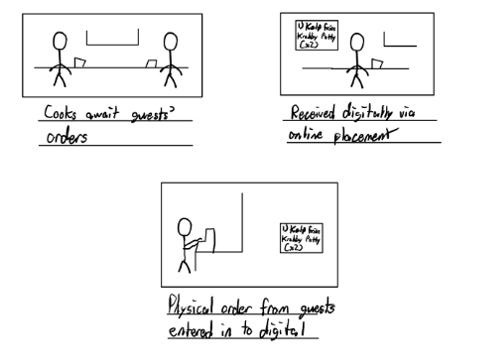 Cooks await guests'
orders
1) Kelp fries
Krabby Patty
(x2)
Received digitally via
online placement
1) Kelp fries
Krabby Patty
(x2)
Physical order from guests
entered in to digital